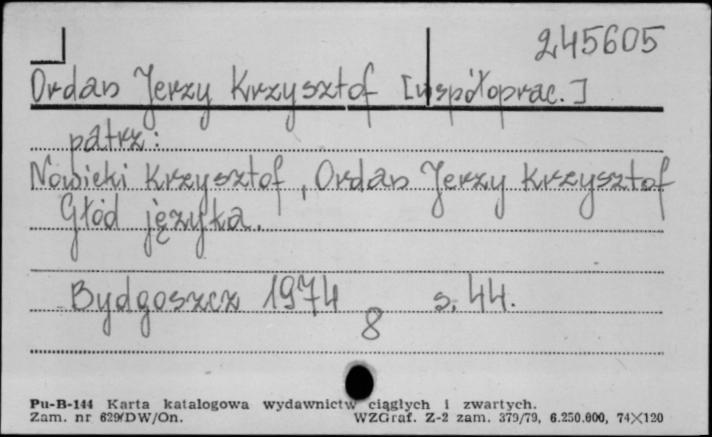 245605
Ordan Jerzy Krzysztof [współoprac.]
patrz:
Nowicki Krzysztof, Ordan Jerzy Krzysztof
Głód języka.
Bydgoszcz 1974 s. 44.
8
Pu-B-144 Karta katalogowa wydawnictw ciągłych i zwartych.
Zam. nr 629/DW/On. WZGraf. Z-2 zam. 379/79, 6.250.000, 74×120